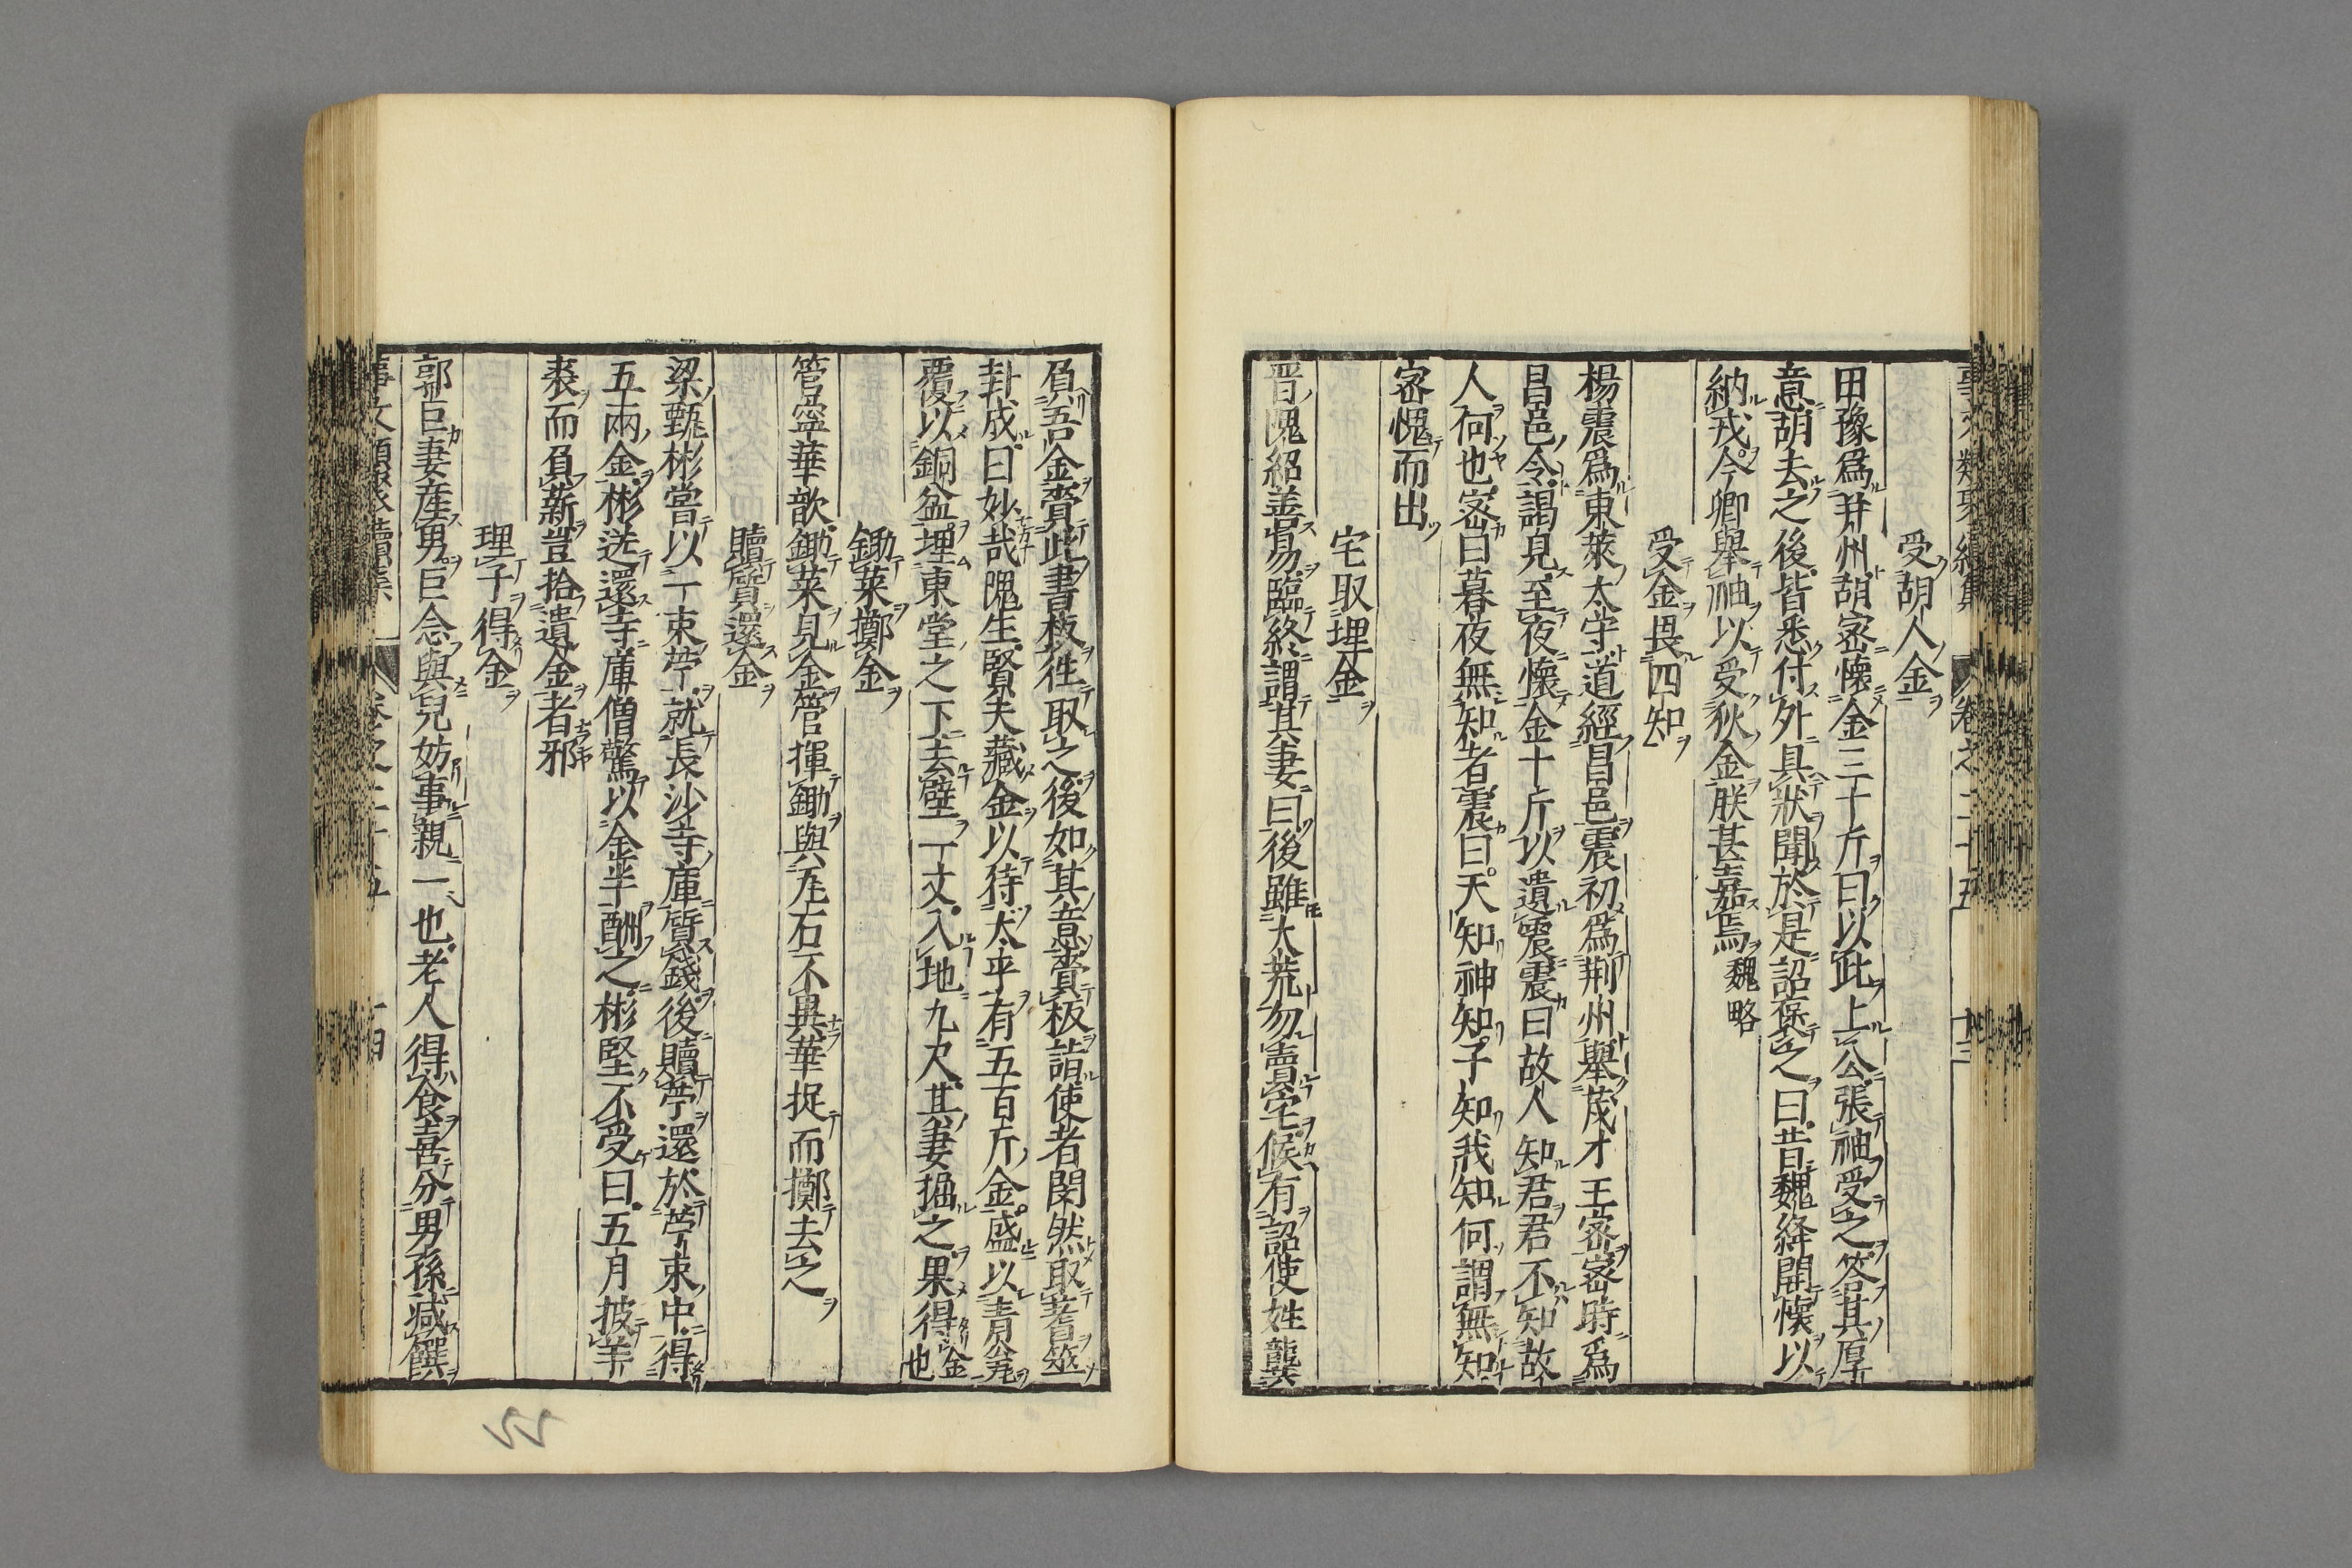 受胡人金
田豫爲并州胡密懷金三十斤曰以此上公張袖受之答其厚
意胡去之後皆悉付外具狀聞於是詔褒之曰昔魏絳開懷以
納戎今卿舉袖以受狄金朕甚嘉焉魏略
受金畏四知
楊震爲東萊太守道經昌邑震初爲荆州舉茂才王密密時爲
昌邑令謁見至夜懷金十斤以遺震震曰故人知君君不知故
人何也密曰暮夜無知者震曰天知神知子知我知何謂無知
密愧而出
宅取埋金
晋隗紹善易臨終謂其妻曰後雖大荒勿賣宅候有詔使姓龔
負吾金賫此書板往取之後如其意賫板詣使者閔然取蓍筮
卦成曰妙哉隗生賢夫藏金以待太平有五百斤金盛以青瓮
覆以銅盆埋東堂之下去壁一丈入地九尺其妻掘之果得金也
鋤菜擲金
管寧華歆鋤菜見金管揮鋤與瓦石不異華捉而擲去之
贖質還金
梁甄彬嘗以一束苧就長沙寺庫質錢後贖苧還於苧束中得
五兩金彬送還寺庫僧驚以金半酬之彬堅不受曰五月披羊
裘而負薪豈拾遺金者邪
理子得金
郭巨妻産男巨念與兒妨事親一也老人得食喜分男孫减饌